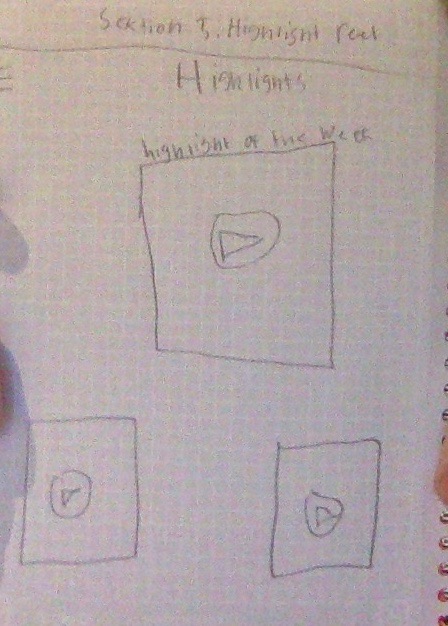 Section 3. Highlight reel
Highlights
highlight of the week